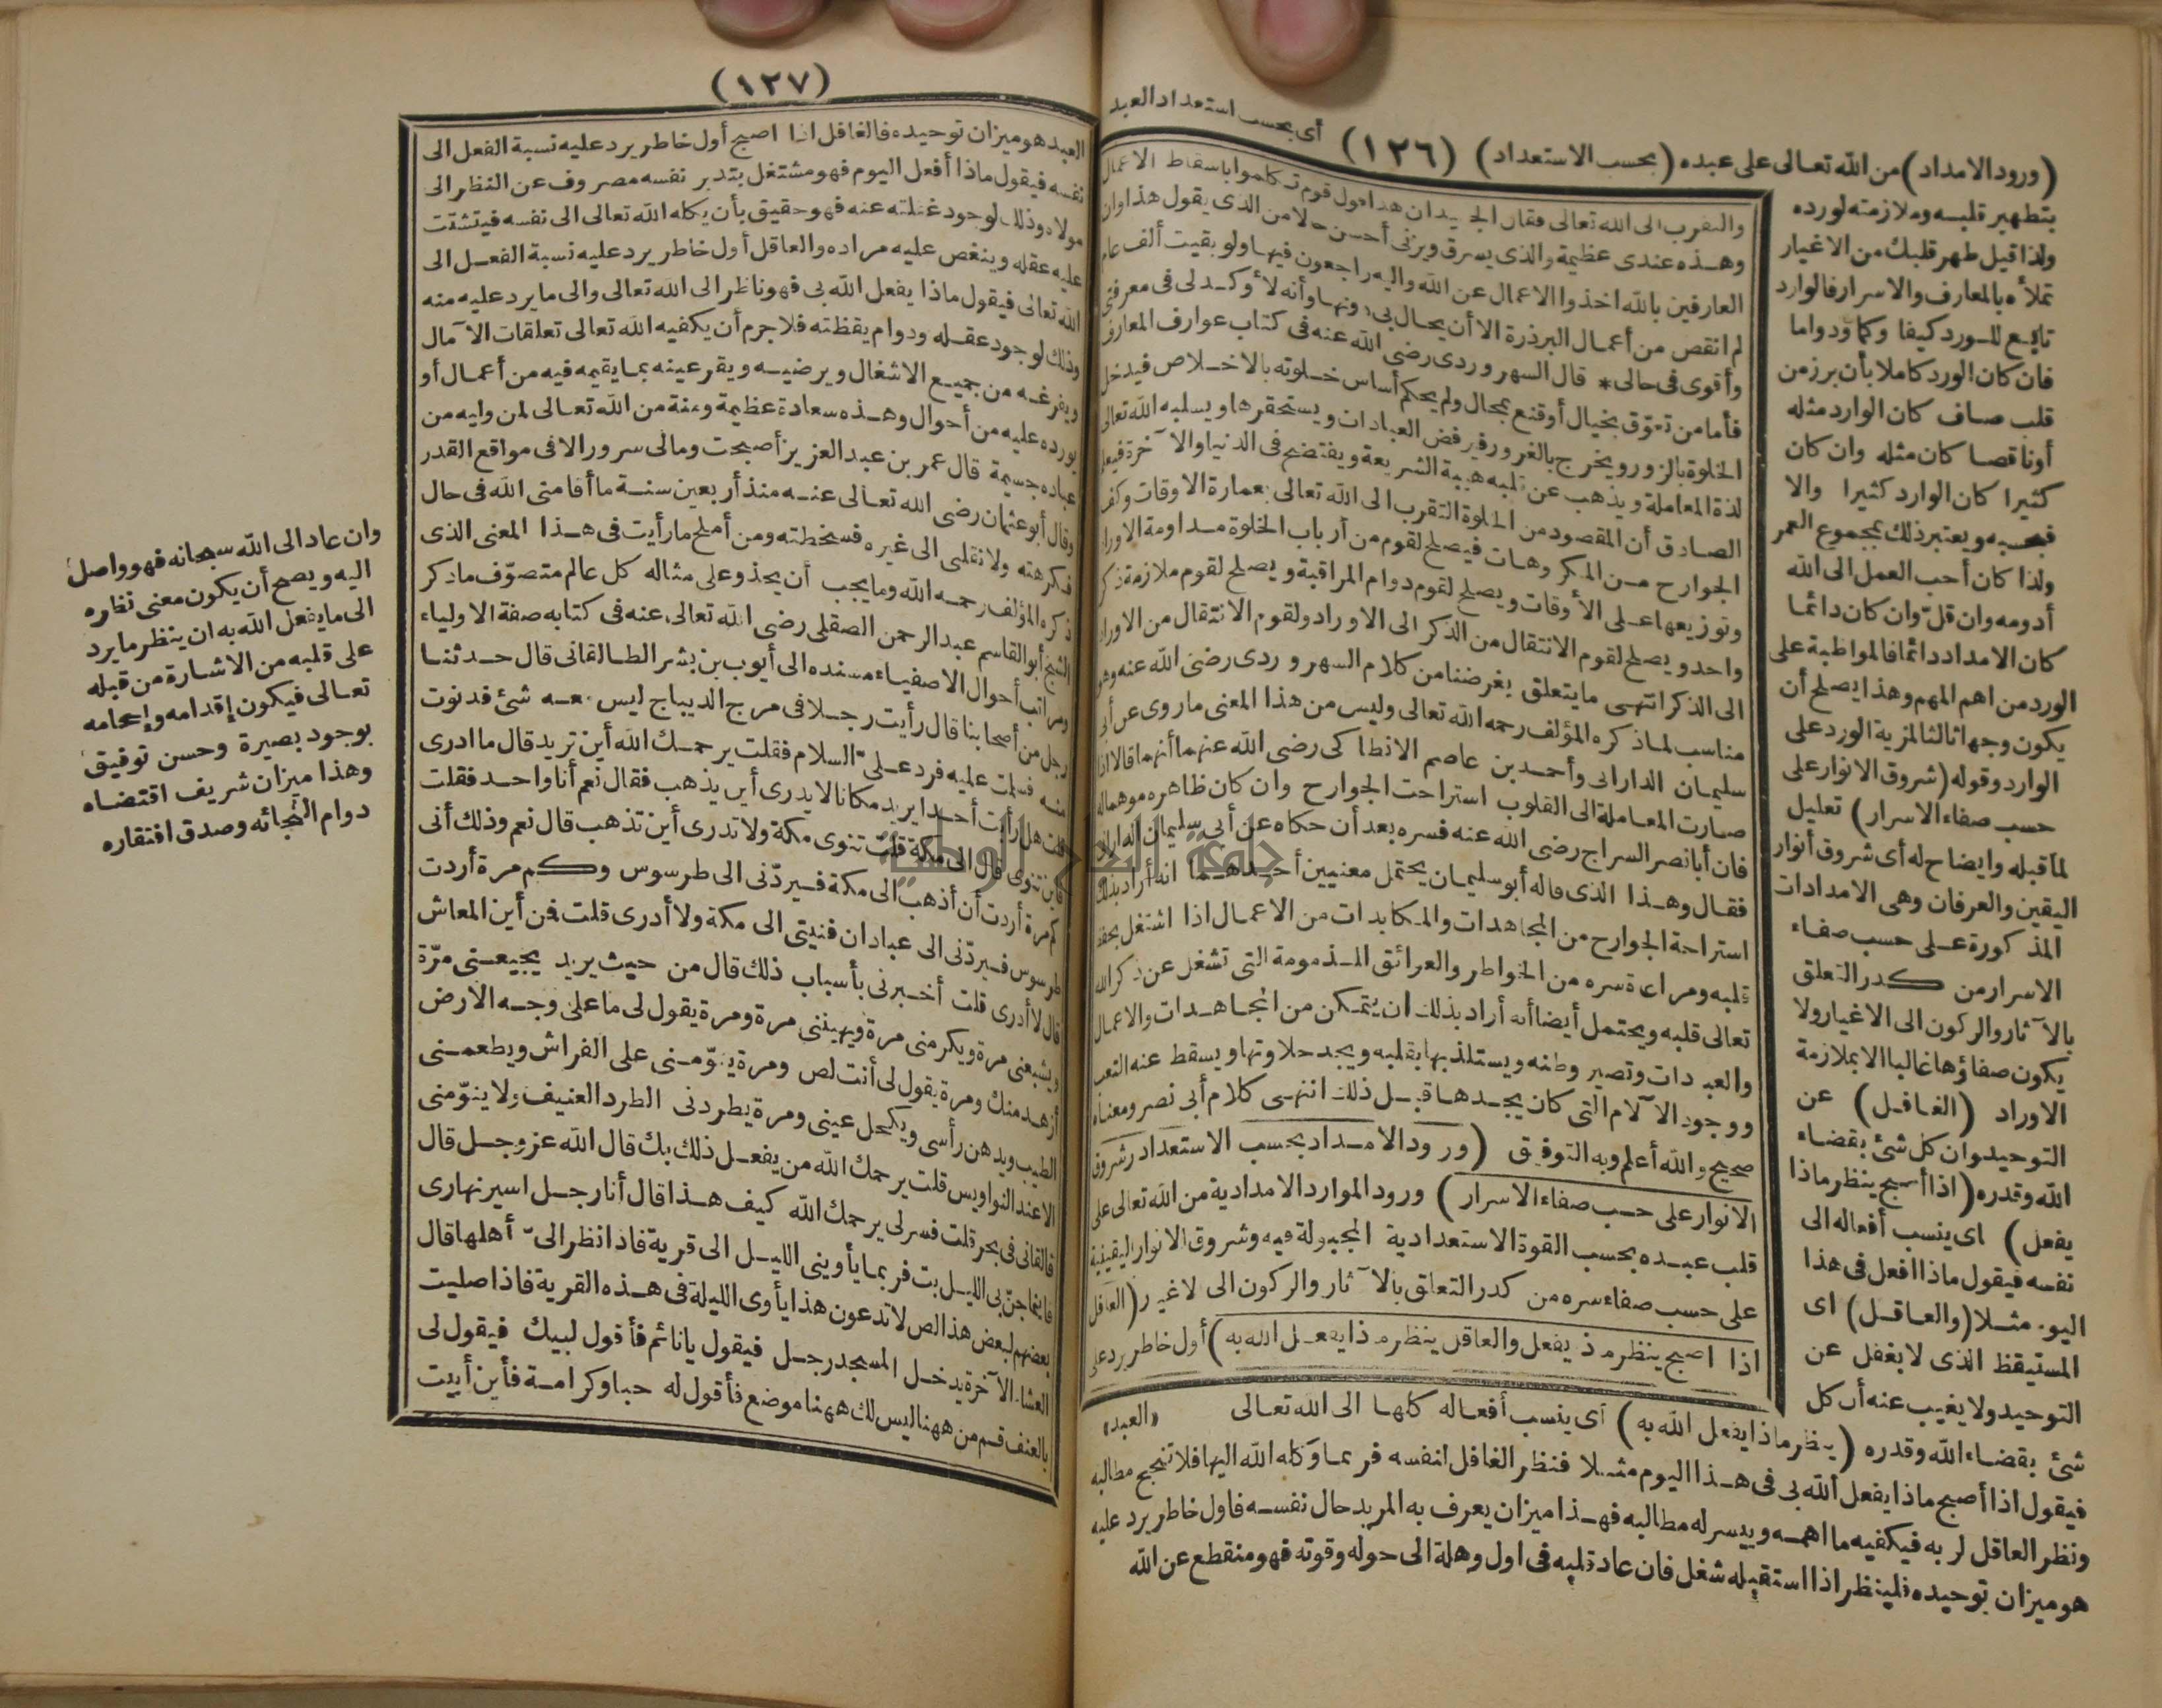 (١٢٦)
أى بحسب استعداد العبد
(ورود الامداد) من الله تعالى على عبده (بحسب الاستعداد)
بتطهير قلبه وملازمته لورده
ولذا قيل طهر قلبك من الاغيار
تملأه بالمعارف والاسرار فالوارد
تابع للورد كيفا وكما ودواما
فان كان الورد كاملا بأن برز من
قلب صاف كان الوارد مثله
أو ناقصا كان مثله وان كان
كثيرا كان الوارد كثيرا والا
فبحسبه ويعتبر ذلك بمجموع العمر
ولذا كان أحب العمل الى الله
أدومه وان قلّ وان كان دائما
كان الامداد دائما فالمواظبة على
الورد من اهم المهم وهذا يصلح أن
يكون وجها ثالثا لمزية الورد على
الوارد وقوله (شروق الانوار على
حسب صفاء الاسرار) تعليل
لما قبله وايضاح له أى شروق أنوار
اليقين والعرفان وهى الامدادات
المذكورة على حسب صفاء
الاسرار من كدر التعلق
بالآثار والركون الى الاغيار ولا
يكون صفاؤها غالبا الا بملازمة
الاوراد (الغافل) عن
التوحيد وان كل شئ بقضاء
الله وقدره (اذا أصبح ينظر ماذا
يفعل) اى ينسب أفعاله الى
نفسه فيقول ماذا افعل فى هذا
اليوم مثلا (والعاقل) اى
المستيقظ الذى لا يغفل عن
التوحيد ولا يغيب عنه أن كل
شئ بقضاء الله وقدره (ينظر ماذا يفعل الله به) أى ينسب أفعاله كلها الى الله تعالى
فيقول اذا أصبح ماذا يفعل الله بى فى هذا اليوم مثلا فنظر الغافل لنفسه فربما وكله الله اليها فلا تنجح مطالبه
ونظر العاقل لربه فيكفيه ما اهمه وييسر له مطالبه فهذا ميزان يعرف به المريد حال نفسه فاول خاطر يرد عليه
هو ميزان توحيده فلينظر اذا استقبله شغل فان عاد قلبه فى اول وهلة الى حوله وقوته فهو منقطع عن الله
والتقرب الى الله تعالى فقال الجنيد ان هذا قول قوم تكلموا باسقاط الاعمال
وهذه عندى عظيمة والذى يسرق ويزنى أحسن حالا من الذى يقول هذا وان
العارفين بالله اخذوا الاعمال عن الله واليه راجعون فيها ولو بقيت ألف عام
لم انقص من أعمال البر ذرة الا أن يحال بى دونها وأنه لأوكد لى فى معرفتى
وأقوى فى حالى * قال السهروردى رضى الله عنه فى كتاب عوارف المعارف
فأما من تعوّق بخيال أو قنع بمحال ولم يحكم أساس خلوته بالاخلاص فيدخل
الخلوة بالزور ويخرج بالغرور فيرفض العبادات ويستحقرها ويسلبه الله تعالى
لذة المعاملة ويذهب عن قلبه هيبة الشريعة ويفتضح فى الدنيا والآخرة فيعلم
الصادق أن المقصود من الخلوة التقرب الى الله تعالى بعمارة الاوقات وكف
الجوارح من المكروهات فيصلح لقوم من أرباب الخلوة مداومة الاوراد
وتوزيعها على الأوقات ويصلح لقوم دوام المراقبة ويصلح لقوم ملازمة ذكر
واحد ويصلح لقوم الانتقال من الذكر الى الاوراد ولقوم الانتقال من الاوراد
الى الذكر انتهى ما يتعلق بغرضنا من كلام السهروردى رضى الله عنه وهو
مناسب لما ذكره المؤلف رحمه الله تعالى وليس من هذا المعنى ما روى عن أبى
سليمان الدارانى وأحمد بن عاصم الانطاكى رضى الله عنهما أنهما قالا اذا
صارت المعاملة الى القلوب استراحت الجوارح وان كان ظاهره موهما له
فان أبا نصر السراج رضى الله عنه فسره بعد أن حكاه عن أبى سليمان الدارانى
فقال وهذا الذى قاله أبو سليمان يحتمل معنيين أحدهما انه أراد بذلك
استراحة الجوارح من المجاهدات والمكابدات من الاعمال اذا اشتغل بحفظ
قلبه ومراعاة سره من الخواطر والعوائق المذمومة التى تشغل عن ذكر الله
تعالى قلبه ويحتمل أيضا أنه أراد بذلك ان يتمكن من المجاهدات والاعمال
والعبادات وتصير وطنه ويستلذ بها بقلبه ويجد حلاوتها ويسقط عنه التعب
ووجود الآلام التى كان يجدها قبل ذلك انتهى كلام أبى نصر ومعناه
صحيح والله أعلم وبه التوفيق (ورود الامداد بحسب الاستعداد وشروق
الانوار على حسب صفاء الاسرار) ورود الموارد الامدادية من الله تعالى على
قلب عبده بحسب القوة الاستعدادية المجبولة فيه وشروق الانوار اليقينية
على حسب صفاء سره من كدر التعلق بالآثار والركون الى الاغيار (الغافل
اذا اصبح ينظر ماذا يفعل والعاقل ينظر ماذا يفعل الله به) أول خاطر يرد على
«العبد»
(١٢٧)
العبد هو ميزان توحيده فالغافل اذا اصبح أول خاطر يرد عليه نسبة الفعل الى
نفسه فيقول ماذا أفعل اليوم فهو مشتغل بتدبر نفسه مصروف عن النظر الى
مولاه وذلك لوجود غفلته عنه فهو حقيق بأن يكله الله تعالى الى نفسه فيتشتت
عليه عقله وينغص عليه مراده والعاقل أول خاطر يرد عليه نسبة الفعل الى
الله تعالى فيقول ماذا يفعل الله بى فهو ناظر الى الله تعالى والى ما يرد عليه منه
وذلك لوجود عقله ودوام يقظته فلا جرم أن يكفيه الله تعالى تعلقات الآمال
ويفرغه من جميع الاشغال ويرضيه ويقر عينه بما يقيمه فيه من أعمال أو
يورده عليه من أحوال وهذه سعادة عظيمة ومنة من الله تعالى لمن وليه من
عباده جسيمة قال عمر بن عبد العزيز أصبحت ومالى سرور الا فى مواقع القدر
وقال أبو عثمان رضى الله تعالى عنه منذ أربعين سنة ما أقامنى الله فى حال
فكرهته ولا نقلنى الى غيره فسخطته ومن أملح ما رأيت فى هذا المعنى الذى
ذكره المؤلف رحمه الله وما يجب أن يحذو على مثاله كل عالم متصوّف ما ذكر
الشيخ أبو القاسم عبد الرحمن الصقلى رضى الله تعالى عنه فى كتابه صفة الاولياء
ومراتب أحوال الاصفياء مسنده الى أيوب بن بشر الطالقانى قال حدثنا
رجل من أصحابنا قال رأيت رجلا فى مرج الديباج ليس معه شئ فدنوت
منه فسلمت عليه فرد علىّ السلام فقلت يرحمك الله أين تريد قال ما ادرى
قلت هل رأيت أحدا يريد مكانا لا يدرى أين يذهب فقال نعم أنا واحد فقلت
فأين تنوى قال الى مكة قلت تنوى مكة ولا تدرى أين تذهب قال نعم وذلك أنى
كم مرة أردت أن أذهب الى مكة فيردّنى الى طرسوس وكم مرة أردت
طرسوس فيردّنى الى عبادان فنيتى الى مكة ولا أدرى قلت فمن أين المعاش
قال لا أدرى قلت أخبرنى بأسباب ذلك قال من حيث يريد يجيعنى مرّة
ويشبعنى مرة ويكرمنى مرة ويهيننى مرة ومرة يقول لى ما على وجه الارض
أزهد منك ومرة يقول لى أنت لص ومرة ينوّمنى على الفراش ويطعمنى
الطيب ويدهن رأسى ويكحل عينى ومرة يطردنى الطرد العنيف ولا ينوّمنى
الا عند النواويس قلت يرحمك الله من يفعل ذلك بك قال الله عز وجل قال
فالقانى فى بحر قلت فسر لى يرحمك الله كيف هذا قال أنا رجل اسير نهارى
فاينما جنّ بى الليل بت فربما يأوينى الليل الى قرية فاذا نظر الىّ أهلها قال
بعضهم لبعض هذا لص لا تدعون هذا يأوى الليلة فى هذه القرية فاذا صليت
العشاء الآخرة يدخل المسجد رجل فيقول يا نائم فأقول لبيك فيقول لى
بالعنف قم من ههنا ليس لك ههنا موضع فأقول له حبا وكرامة فأين أبيت
وان عاد الى الله سبحانه فهو واصل
اليه ويصح أن يكون معنى نظره
الى ما يفعل الله به ان ينظر ما يرد
على قلبه من الاشارة من قبله
تعالى فيكون إقدامه وإحجامه
بوجود بصيرة وحسن توفيق
وهذا ميزان شريف اقتضاه
دوام التجائه وصدق افتقاره
جامعة النجاح الوطنية